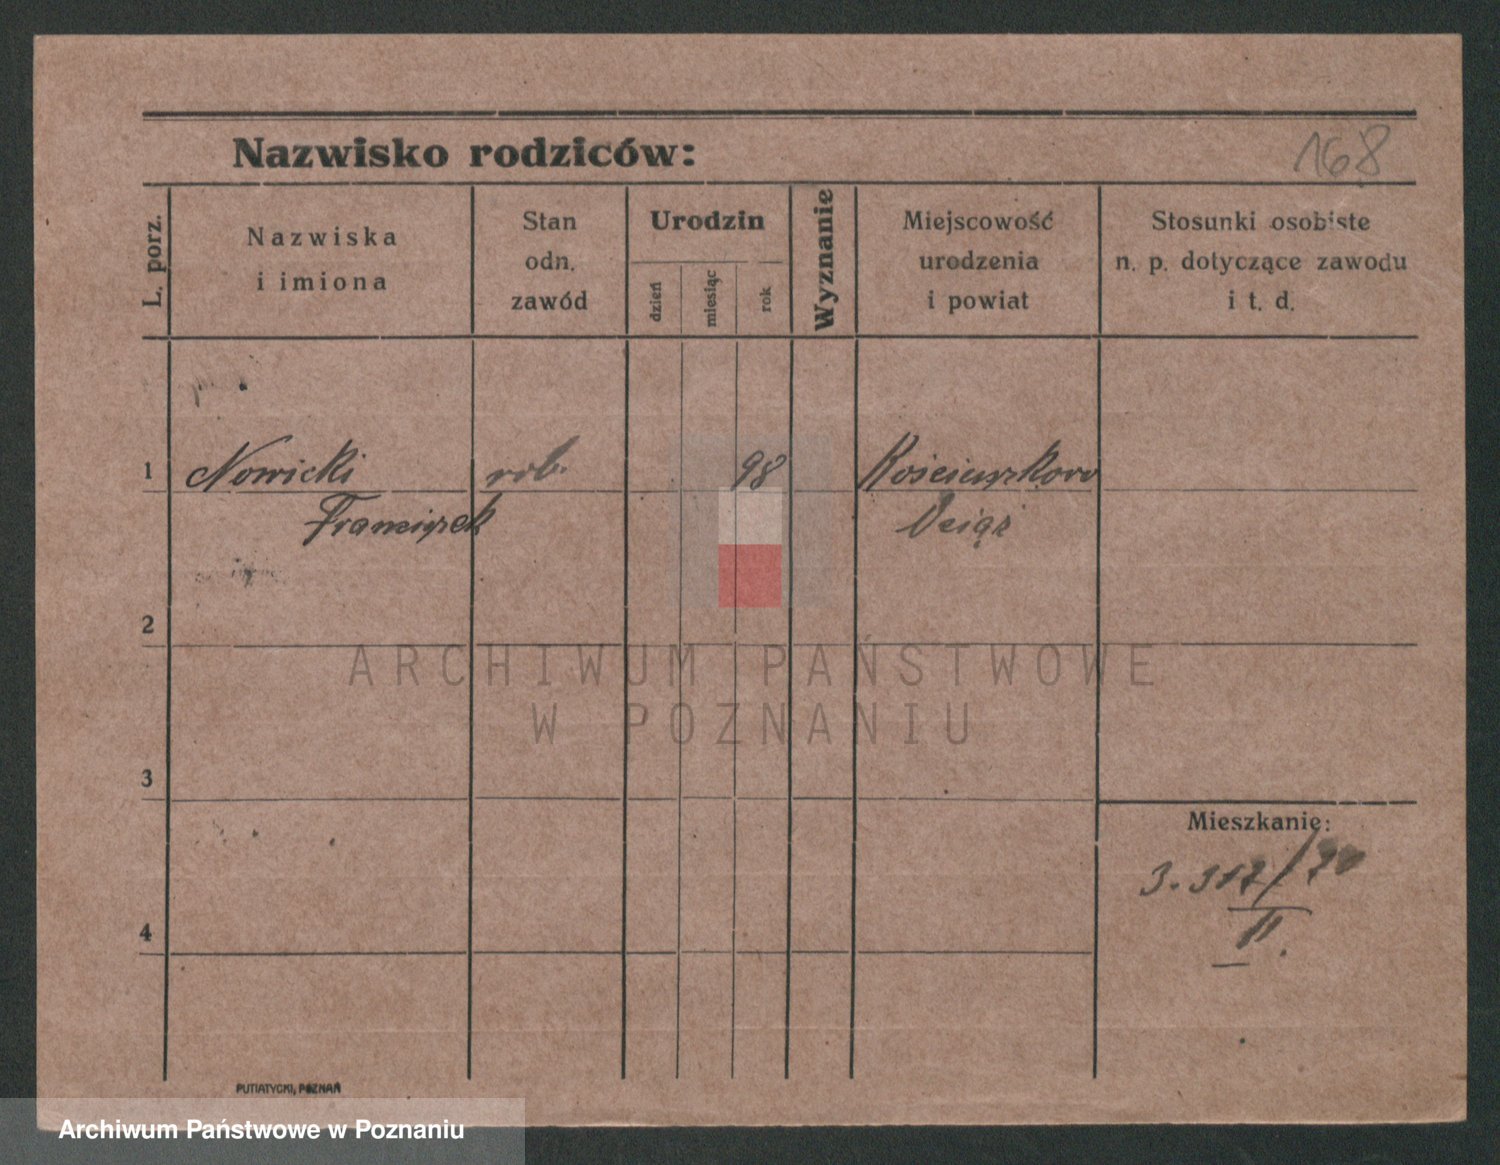 Nazwisko rodziców:
168
L. porz.
Nazwiska
i imiona
Stan
odn.
zawód
Urodzin
dzień
miesiąc
rok
Wyznanie
Miejscowość
urodzenia
i powiat
Stosunki osobiste
n. p. dotyczące zawodu
i t. d.
1
Nowicki
rob.
98
Franciszek
2
ARCHIWUM PAŃSTWOWE
W POZNANIU
3
Mieszkanie:
4
II.
PUTIATYCKI, POZNAŃ
Archiwum Państwowe w Poznaniu